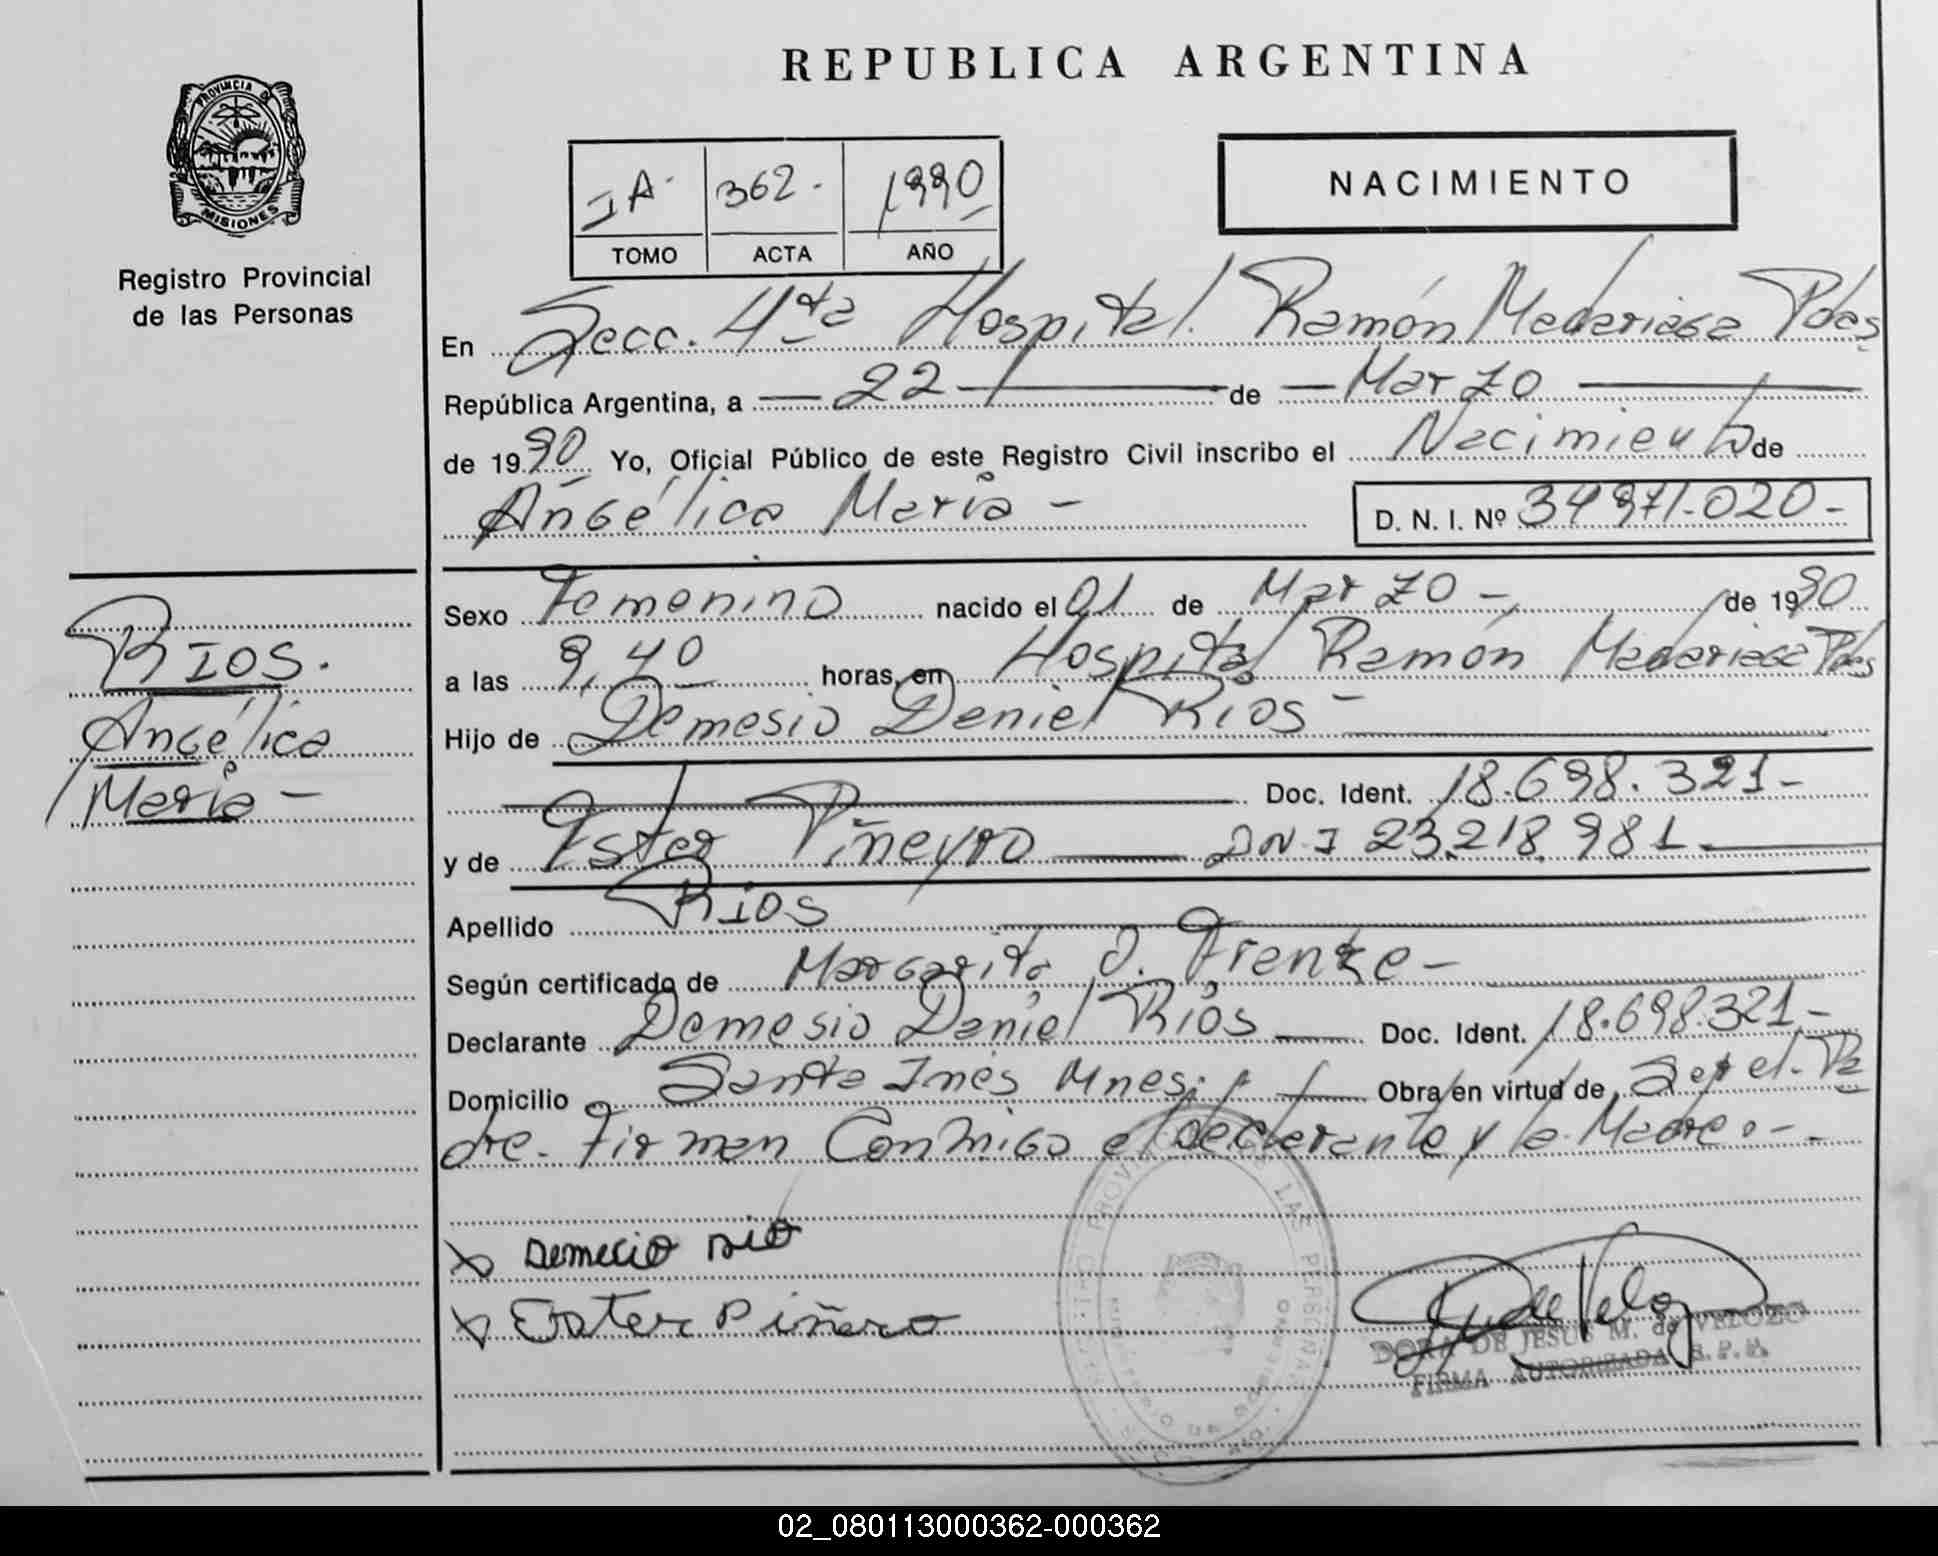 PROVINCIA DE
MISIONES
Registro Provincial
de las Personas
REPUBLICA ARGENTINA
IA 362. 1990
TOMO ACTA AÑO
NACIMIENTO
En Secc. 4ta Hospital Ramón Madariaga Pdas
República Argentina, a 22 de Marzo
de 1990 Yo, Oficial Público de este Registro Civil inscribo el Nacimiento de
Angélica María - D. N. I. Nº 34971.020-
RIOS.
Angélica
María -
Sexo Femenino nacido el 01 de Marzo - de 1990
a las 9,40 horas, en Hospital Ramón Madariaga Pdas
Hijo de Demesio Daniel Rios -
Doc. Ident. 18.698.321-
y de Ester Piñeyro DNI 23.218.981
Apellido Rios
Según certificado de Margarita O. Frenke -
Declarante Demesio Daniel Ríos Doc. Ident. 18.698.321-
Domicilio Santa Inés Mnes. Obra en virtud de Ser el Pa
dre. Firman Conmigo el declarante y la Madre.-
Demecio Rio
Ester Piñero
DORA DE JESUS M. de VELOZO
FIRMA AUTORIZADA R. P. P.
02_080113000362-000362